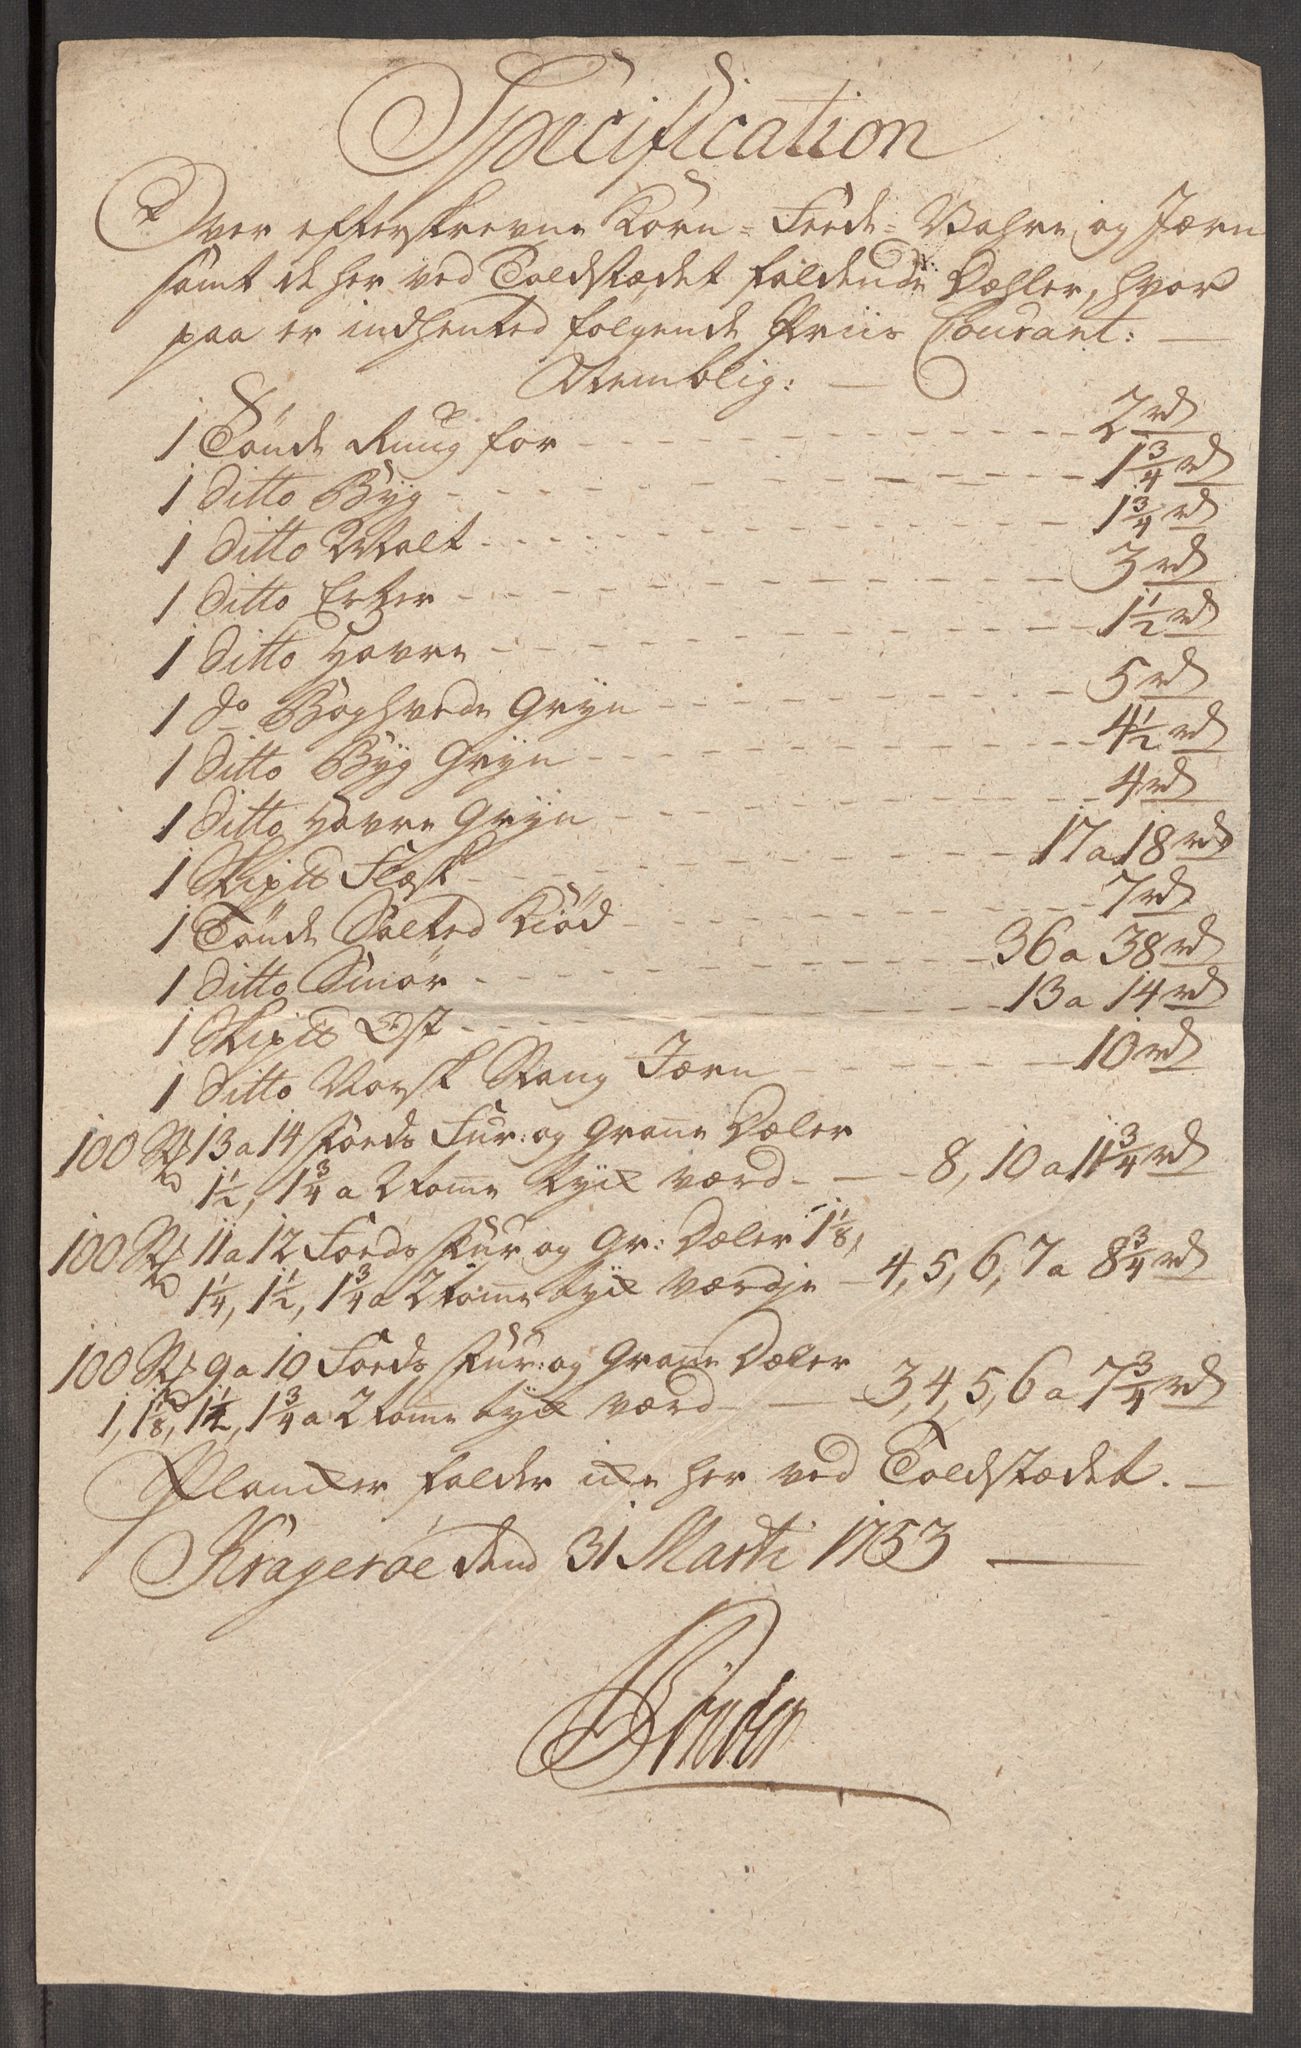 Specification
Over efterskrevne Korn- Feede- Vahre og Jærn
samt de her ved Toldstædet faldende Dæhler, hvor
paa er indhented følgende Priis Courant:
Nemblig:
1 Tønde Ruug for 2 rd
1 ditto Byg 1 3/4 rd
1 ditto Malt 1 3/4 rd
1 ditto Erter 3 rd
1 ditto Havre 1 1/2 rd
1 do Boghvede Gryn 5 rd
1 ditto Byg Gryn 4 1/2 rd
1 ditto Havre Gryn 4 rd
1 Skip℔ Flæsk 17 a 18 rd
1 Tønde Salted Kiød 7 rd
1 ditto Smør 36 a 38 rd
1 Skip℔ Ost 13 a 14 rd
1 ditto Norsk Stang Jærn 10 rd
100 St 13 a 14 Foeds Fur: og Grane Dæler
1 1/2, 1 3/4 a 2 tomme tyk værd 8, 10 a 11 3/4 rd
100 St 11 a 12 Foeds Fur og Gr: Dæler 1 1/8,
1 1/4, 1 1/2, 1 3/4 a 2 tomme tyk værdje 4, 5, 6, 7 a 8 3/4 rd
100 St 9 a 10 Foeds Fur: og Grane Dæler
1, 1 1/8, 1 1/2, 1 3/4 a 2 tomme tyk værd 3, 4, 5, 6 a 7 3/4 rd
Planker falder ikke her ved Toldstædet.
Kragerøe dend 31 Marti 1753